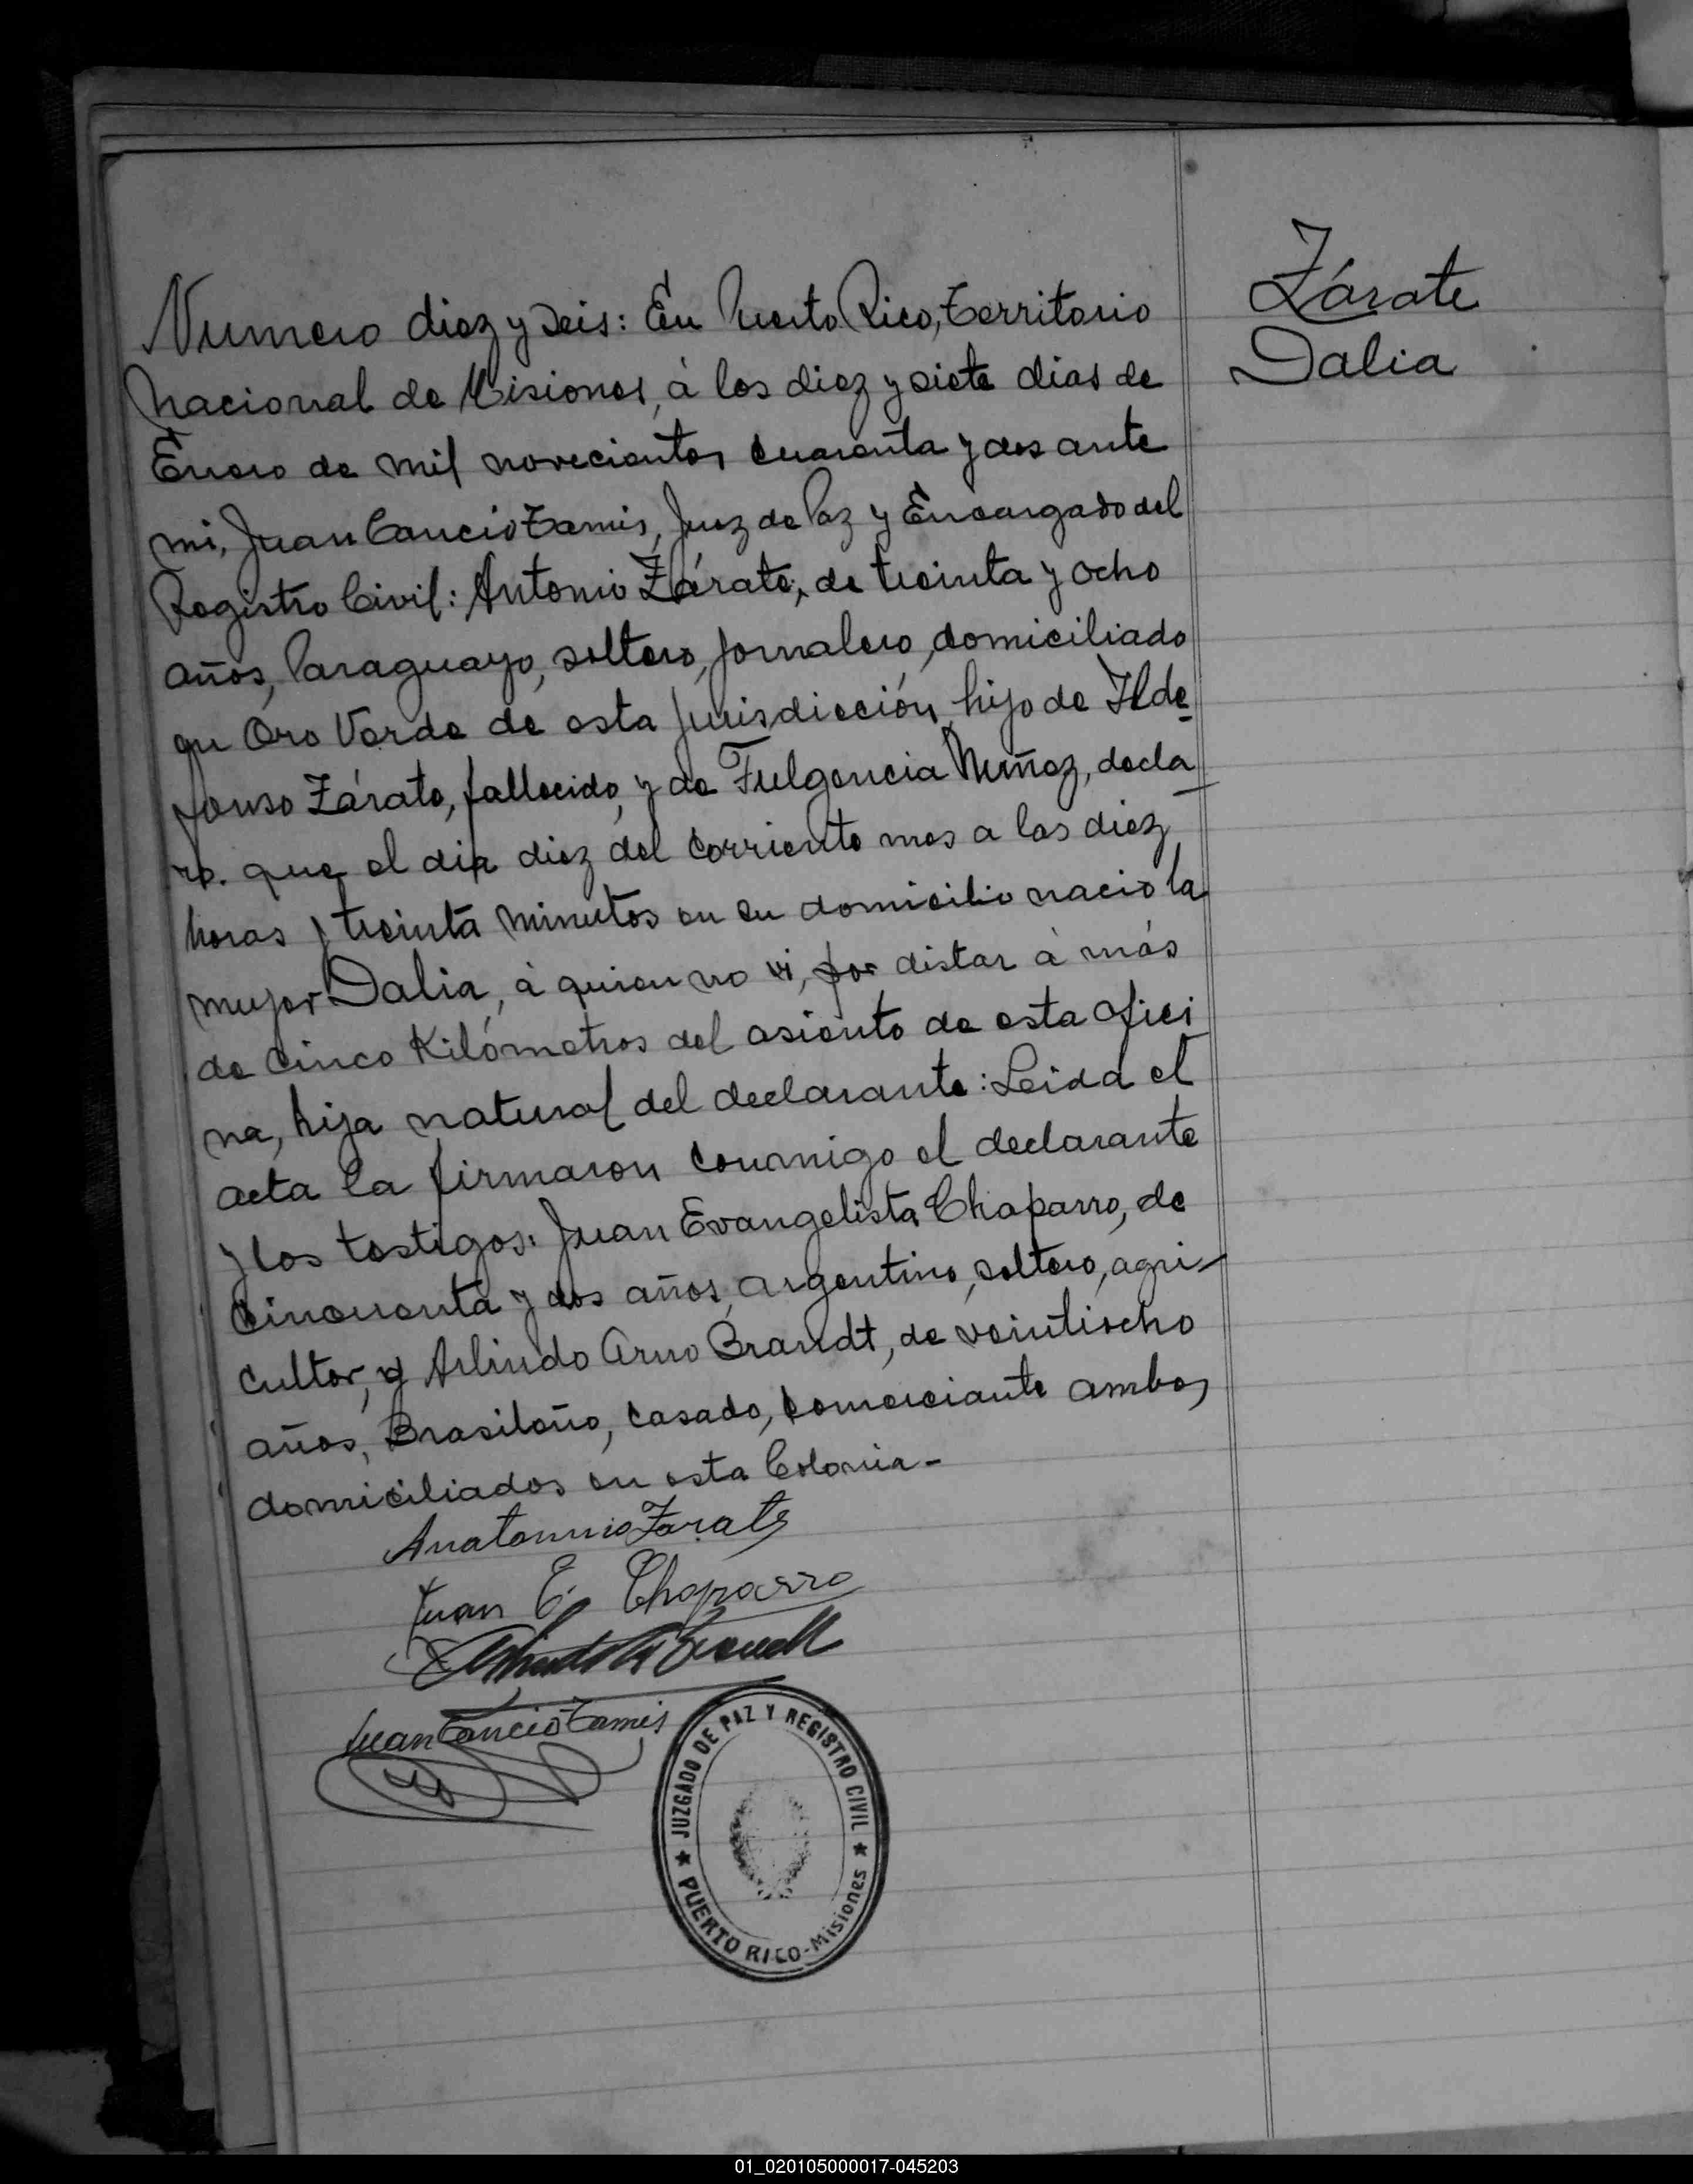 Numero diez y seis: En Puerto Rico, Territorio
Nacional de Misiones, à los diez y siete dias de
Enero de mil novecientos cuarenta y dos ante
mi, Juan Cancio Tamis, Juez de Paz y Encargado del
Registro Civil: Antonio Zárate, de treinta y ocho
años, Paraguayo, soltero, jornalero, domiciliado
en Oro Verde de esta Jurisdicción, hijo de Ilde
fonso Zárate, fallecido, y de Fulgencia Nuñez, decla
ro. que el dia diez del corriente mes a las diez
horas y treinta minutos en su domicilio nacio la
mujer Dalia, à quien no vi, por distar à más
de cinco Kilómetros del asiento de esta ofici
na, hija natural del declarante: Leida el
acta la firmaron conmigo el declarante
y los testigos: Juan Evangelista Chaparro, de
cincuenta y dos años, argentino, soltero, agri-
cultor, y Arlindo Arno Brandt, de veintiocho
años, Brasileño, casado, comerciante ambos
domiciliados en esta Colonia-
Zárate
Dalia
Anatonnio Zarate
Juan E. Chaparro
Arlindo A Brandt
Juan Cancio Tamis
JUZGADO DE PAZ Y REGISTRO CIVIL
PUERTO RICO-Misiones
01_020105000017-045203